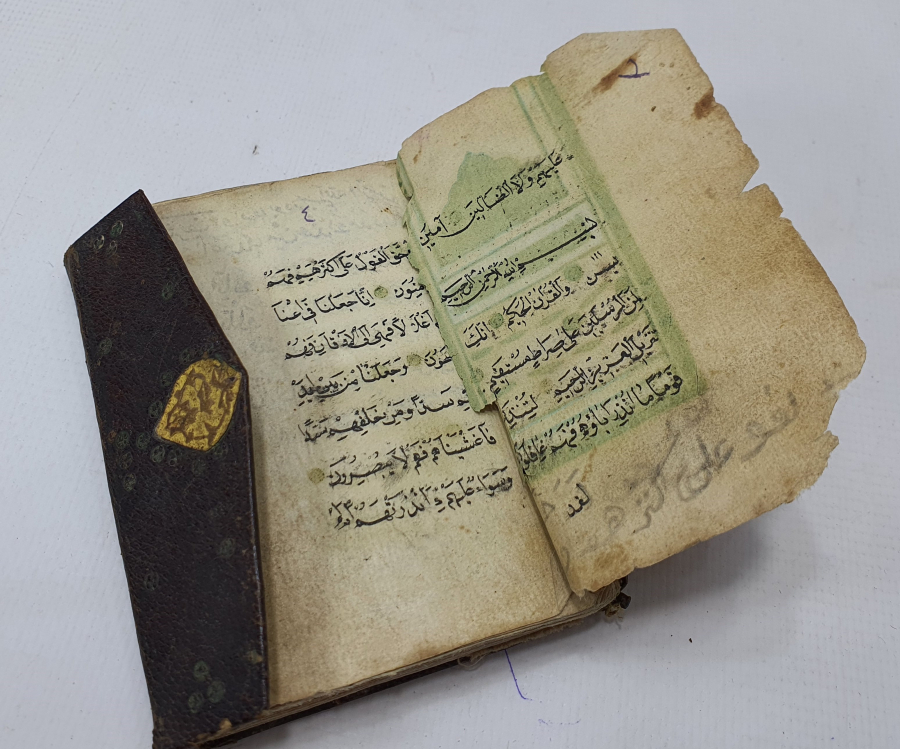 ٢
عليهم ولا الضالين آمين
بسم الله الرحمن الرحيم
يس والقرآن الحكيم إنك
لمن المرسلين على صراط مستقيم
تنزيل العزيز الرحيم لتنذر
قوما ما أنذر آباؤهم فهم غافلون
لقد
على اكثرهم
٤
حق القول على أكثرهم فهم
إنا جعلنا في أعنا
فهي إلى الأذقان فهم
وجعلنا من بين أيديـ
سدا ومن خلفهم سدا
فأغشيناهم فهم لا يبصرون
وسواء عليهم ءأنذرتهم أم